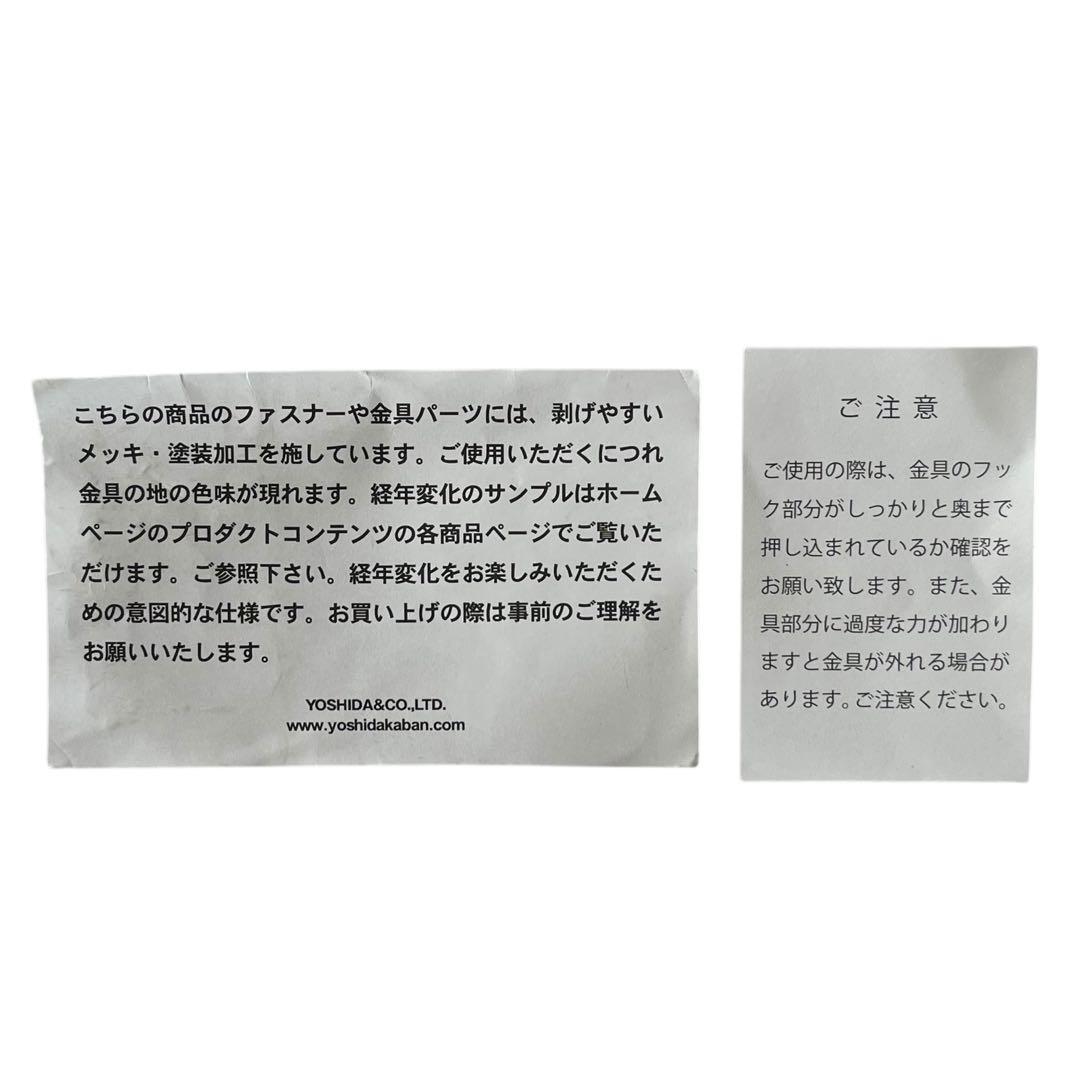 こちらの商品のファスナーや金具パーツには、剥げやすい
メッキ・塗装加工を施しています。ご使用いただくにつれ
金具の地の色味が現れます。経年変化のサンプルはホーム
ページのプロダクトコンテンツの各商品ページでご覧いた
だけます。ご参照下さい。経年変化をお楽しみいただくた
めの意図的な仕様です。お買い上げの際は事前のご理解を
お願いいたします。
YOSHIDA&CO.,LTD.
www.yoshidakaban.com
ご注意
ご使用の際は、金具のフッ
ク部分がしっかりと奥まで
押し込まれているか確認を
お願い致します。また、金
具部分に過度な力が加わり
ますと金具が外れる場合が
あります。ご注意ください。